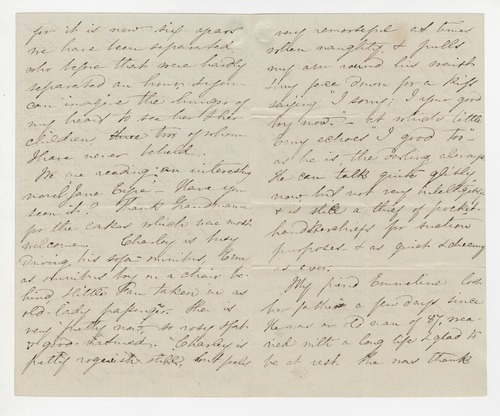 for it is now six years
we have been separated
who before that were hardly
separated an hour, & you
can imagine the hunger of
my heart to see her & her
children, two of whom
I have never beheld.
We are reading an interesting
novel Jane Eyre. Have you
seen it? Thank Grandmama
for the cakes which were most
welcome. Charley is busy
driving his sofa-omnibus, Erny
as omnibus boy on a chair be-
hind, & little Fan taken in as
old-lady passenger. She is
very pretty now, so rosy & fat
& good natured. Charley is
pretty roguish still, but feels
very remorseful at times
when naughty, & pulls
my arm round his waist
& my face down for a kiss
saying "I sorry; I your good
boy now." — at which little
Erny echoes "I good too" —
as he is the darling always.
He can talk quite glibly
now, but not very intelligibly
& is still a thief of pocket-
handkerchiefs for
purposes & as quiet & cheery
as ever.
My friend Emmeline lost
her father a few days since
He was an old man of 87, wea-
ried with a long life & glad to
be at rest. She now thank